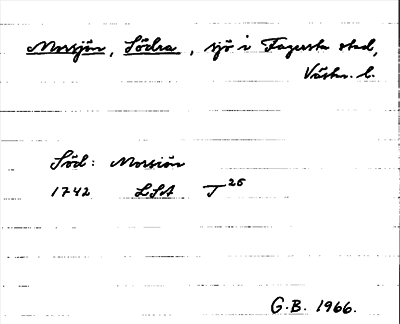 Morsjön, Södra, sjö i Fagersta stad,
Västm. l.
Söd: Morsiön
1742 LSA T 26
G.B. 1966.